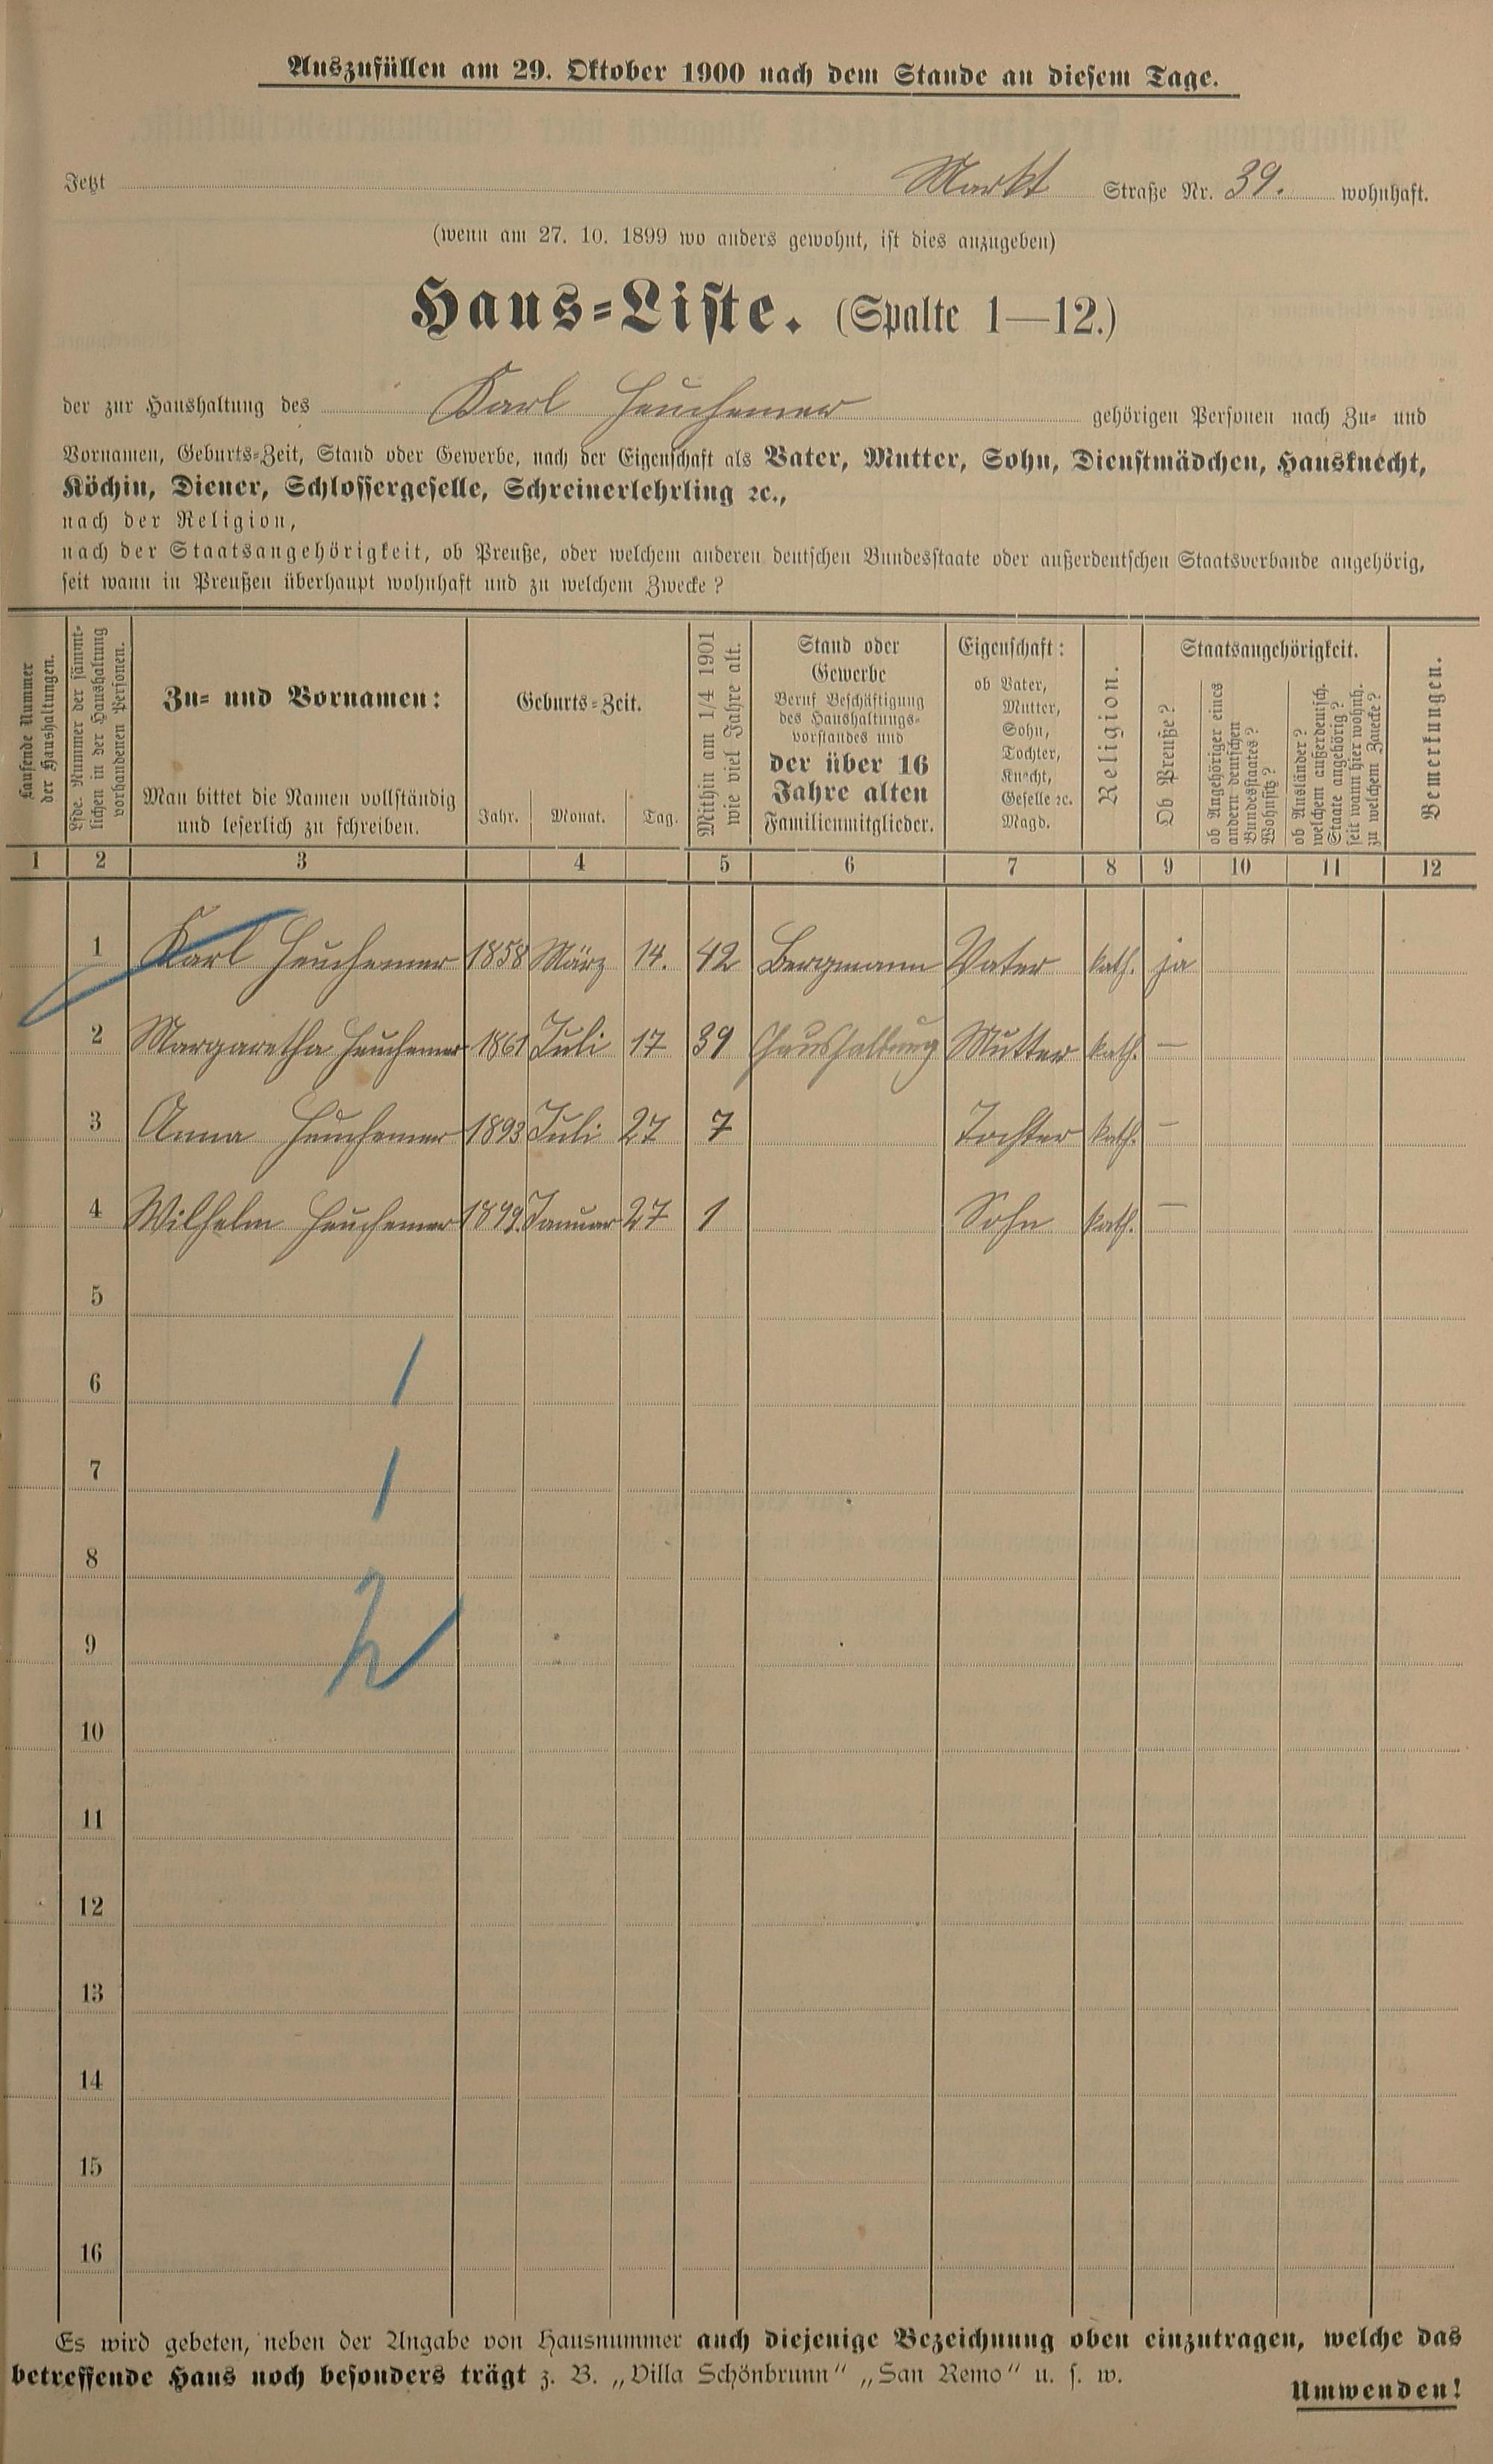 Auszufüllen am 29. Oktober 1900 nach dem Stande an diesem Tage.
Jetzt Markt Straße Nr. 39. wohnhaft.
(wenn am 27. 10. 1899 wo anders gewohnt, ist dies anzugeben)
Haus-Liste. (Spalte 1—12.)
der zur Haushaltung des Karl Heuchemer gehörigen Personen nach Zu- und
Vornamen, Geburts-Zeit, Stand oder Gewerbe, nach der Eigenschaft als Vater, Mutter, Sohn, Dienstmädchen, Hausknecht,
Köchin, Diener, Schlossergeselle, Schreinerlehrling ꝛc.,
nach der Religion,
nach der Staatsangehörigkeit, ob Preuße, oder welchem anderen deutschen Bundesstaate oder außerdeutschen Staatsverbande angehörig,
seit wann in Preußen überhaupt wohnhaft und zu welchem Zwecke?
Laufende Nummer
der Haushaltungen.
Lfde. Nummer der sämmt-
lichen in der Haushaltung
vorhandenen Personen.
Zu- und Vornamen:
Man bittet die Namen vollständig
und leserlich zu schreiben.
Geburts-Zeit.
Jahr. Monat. Tag.
Mithin am 1/4 1901
wie viel Jahre alt.
Stand oder
Gewerbe
Beruf Beschäftigung
des Haushaltungs-
vorstandes und
der über 16
Jahre alten
Familienmitglieder.
Eigenschaft:
ob Vater,
Mutter,
Sohn,
Tochter,
Knecht,
Geselle ꝛc.
Magd.
Religion.
Staatsangehörigkeit.
Ob Preuße?
ob Angehöriger eines
andern deutschen
Bundesstaates?
Wohnsitz?
ob Ausländer?
welchem außerdeutsch.
Staate angehörig?
seit wann hier wohnh.
zu welchem Zwecke?
Bemerkungen.
1 2 3 4 5 6 7 8 9 10 11 12
1 Karl Heuchemer 1858 März 14. 42 Bergmann Vater kath. ja
2 Margaretha Heuchemer 1861 Juli 17 39 Haushaltung Mutter kath. —
3 Anna Heuchemer 1893 Juli 27 7 Tochter kath. —
4 Wilhelm Heuchemer 1899. Januar 27 1 Sohn kath. —
5
6 1
7 1
8
9 2
10
11
12
13
14
15
16
Es wird gebeten, neben der Angabe von Hausnummer auch diejenige Bezeichnung oben einzutragen, welche das
betreffende Haus noch besonders trägt z. B. „Villa Schönbrunn“ „San Remo“ u. s. w.
Umwenden!